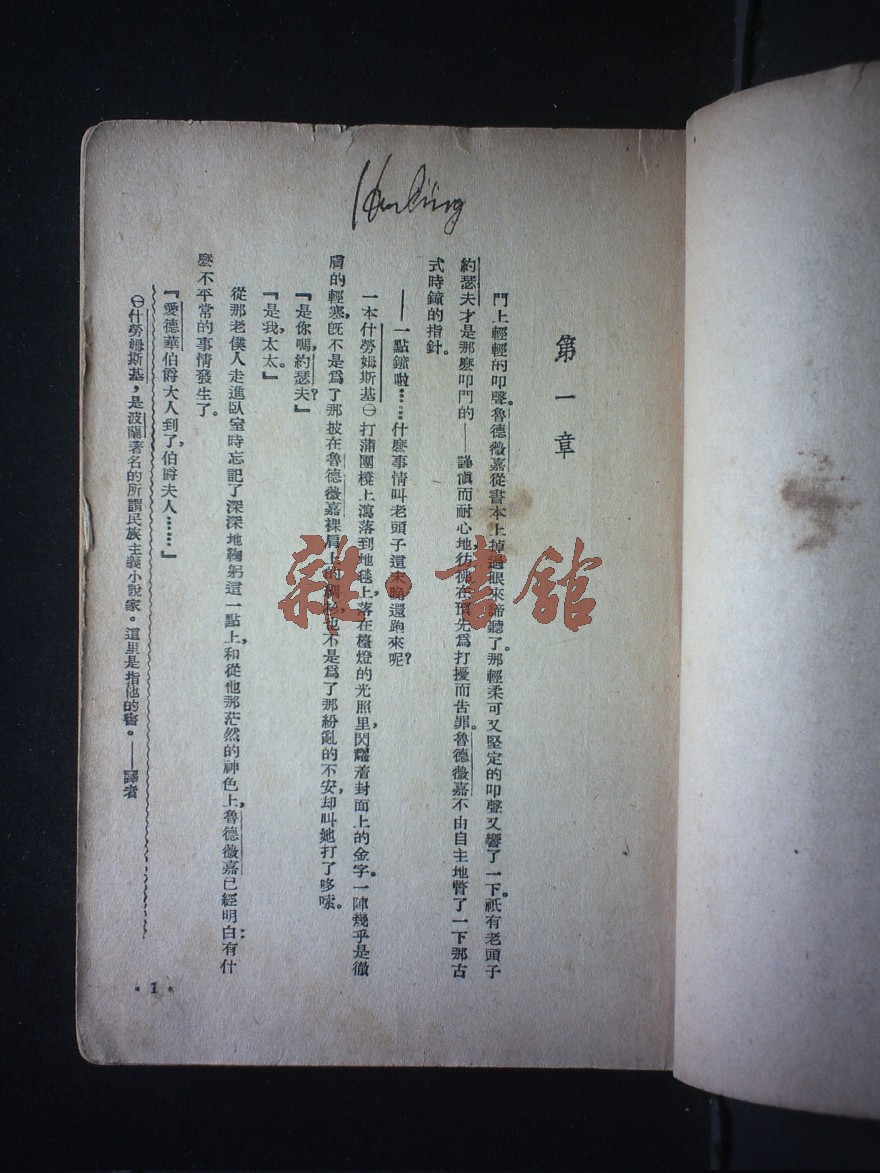 Harling
第一章
門上輕輕的叩聲。魯德薇嘉從書本上掉過眼來諦聽了。那輕柔可又堅定的叩聲又響了一下。祇有老頭子
約瑟夫才是那麼叩門的——謹愼而耐心地，彷彿在預先爲打擾而吿罪。魯德薇嘉不由自主地瞥了一下那古
式時鐘的指針。
——一點鐘啦……什麼事情叫老頭子這末晚還跑來呢？
一本什勞姆斯基㊀打蒲團櫈上瀉落到地毯上，落在檯燈的光照里，閃耀着封面上的金字。一陣幾乎是徹
膚的輕寒，旣不是爲了那披在魯德薇嘉裸肩上的綢衫，也不是爲了那紛亂的不安，却叫她打了哆嗦。
『是你嗎，約瑟夫？』
『是我，太太。』
從那老僕人走進臥室時忘記了深深地鞠躬這一點上，和從他那茫然的神色上，魯德薇嘉已經明白：有什
麼不平常的事情發生了。
『愛德華伯爵大人到了，伯爵夫人……』
㊀什勞姆斯基，是波蘭著名的所謂民族主義小說家。這里是指他的書。——譯者
• 1 •
雜·書館